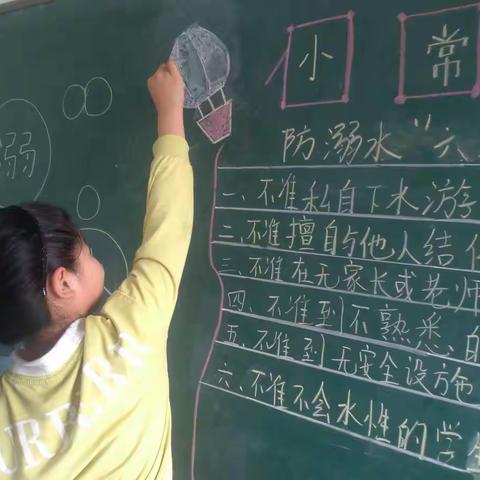 小 常
防溺水"六
溺
一、不准私自下水游
二、不准擅自与他人结
三、不准在无家长或老师
四、不准到不熟悉的
五、不准到无安全设施
六、不准不会水性的学生